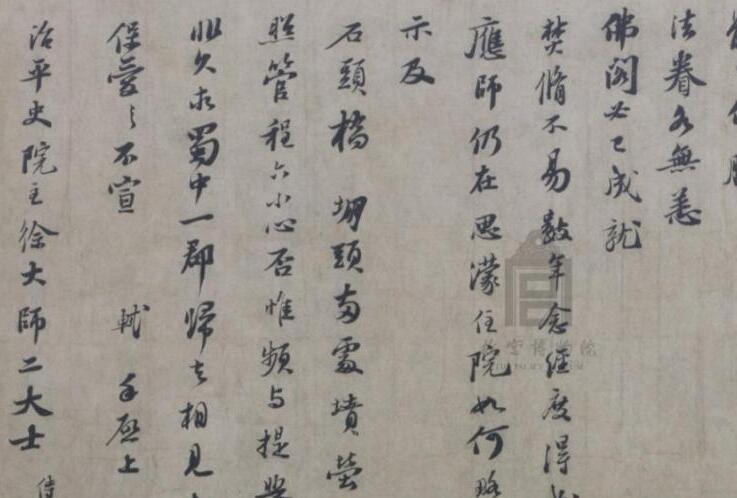 法眷各無恙
佛閣必已成就
焚脩不易數年念經度得
應師仍在思濛住院如何略
示及
石頭橋 堋頭兩處墳塋
照管程六小心否惟頻与提舉
非久求蜀中一郡歸去相見
保愛之不宣 軾 手啓上
治平史院主徐大師二大士
侍
故宮博物院